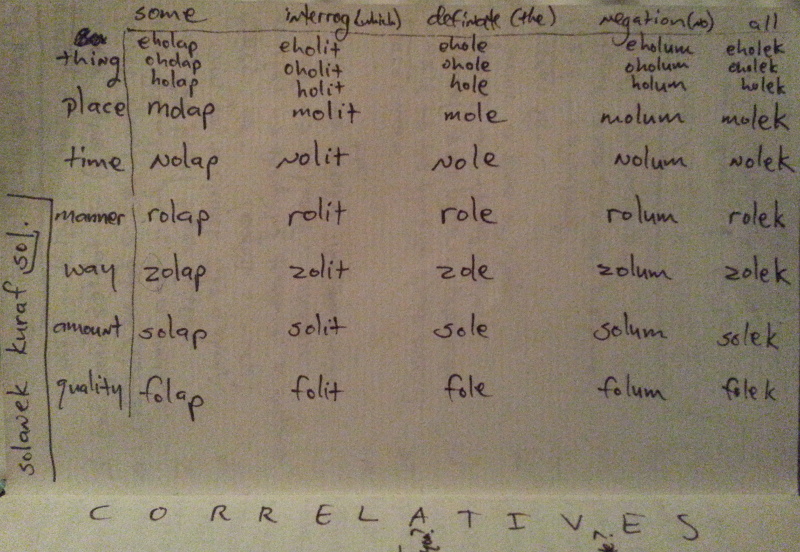 some interrog (which) definate (the) negation (no) all
thing eholap eholit ehole eholum eholek
oholap oholit ohole oholum oholek
holap holit hole holum holek
place molap molit mole molum molek
time nolap nolit nole nolum nolek
manner rolap rolit role rolum rolek
way zolap zolit zole zolum zolek
amount solap solit sole solum solek
quality folap folit fole folum folek
solawek kuraf sol.
CORRELATIVES